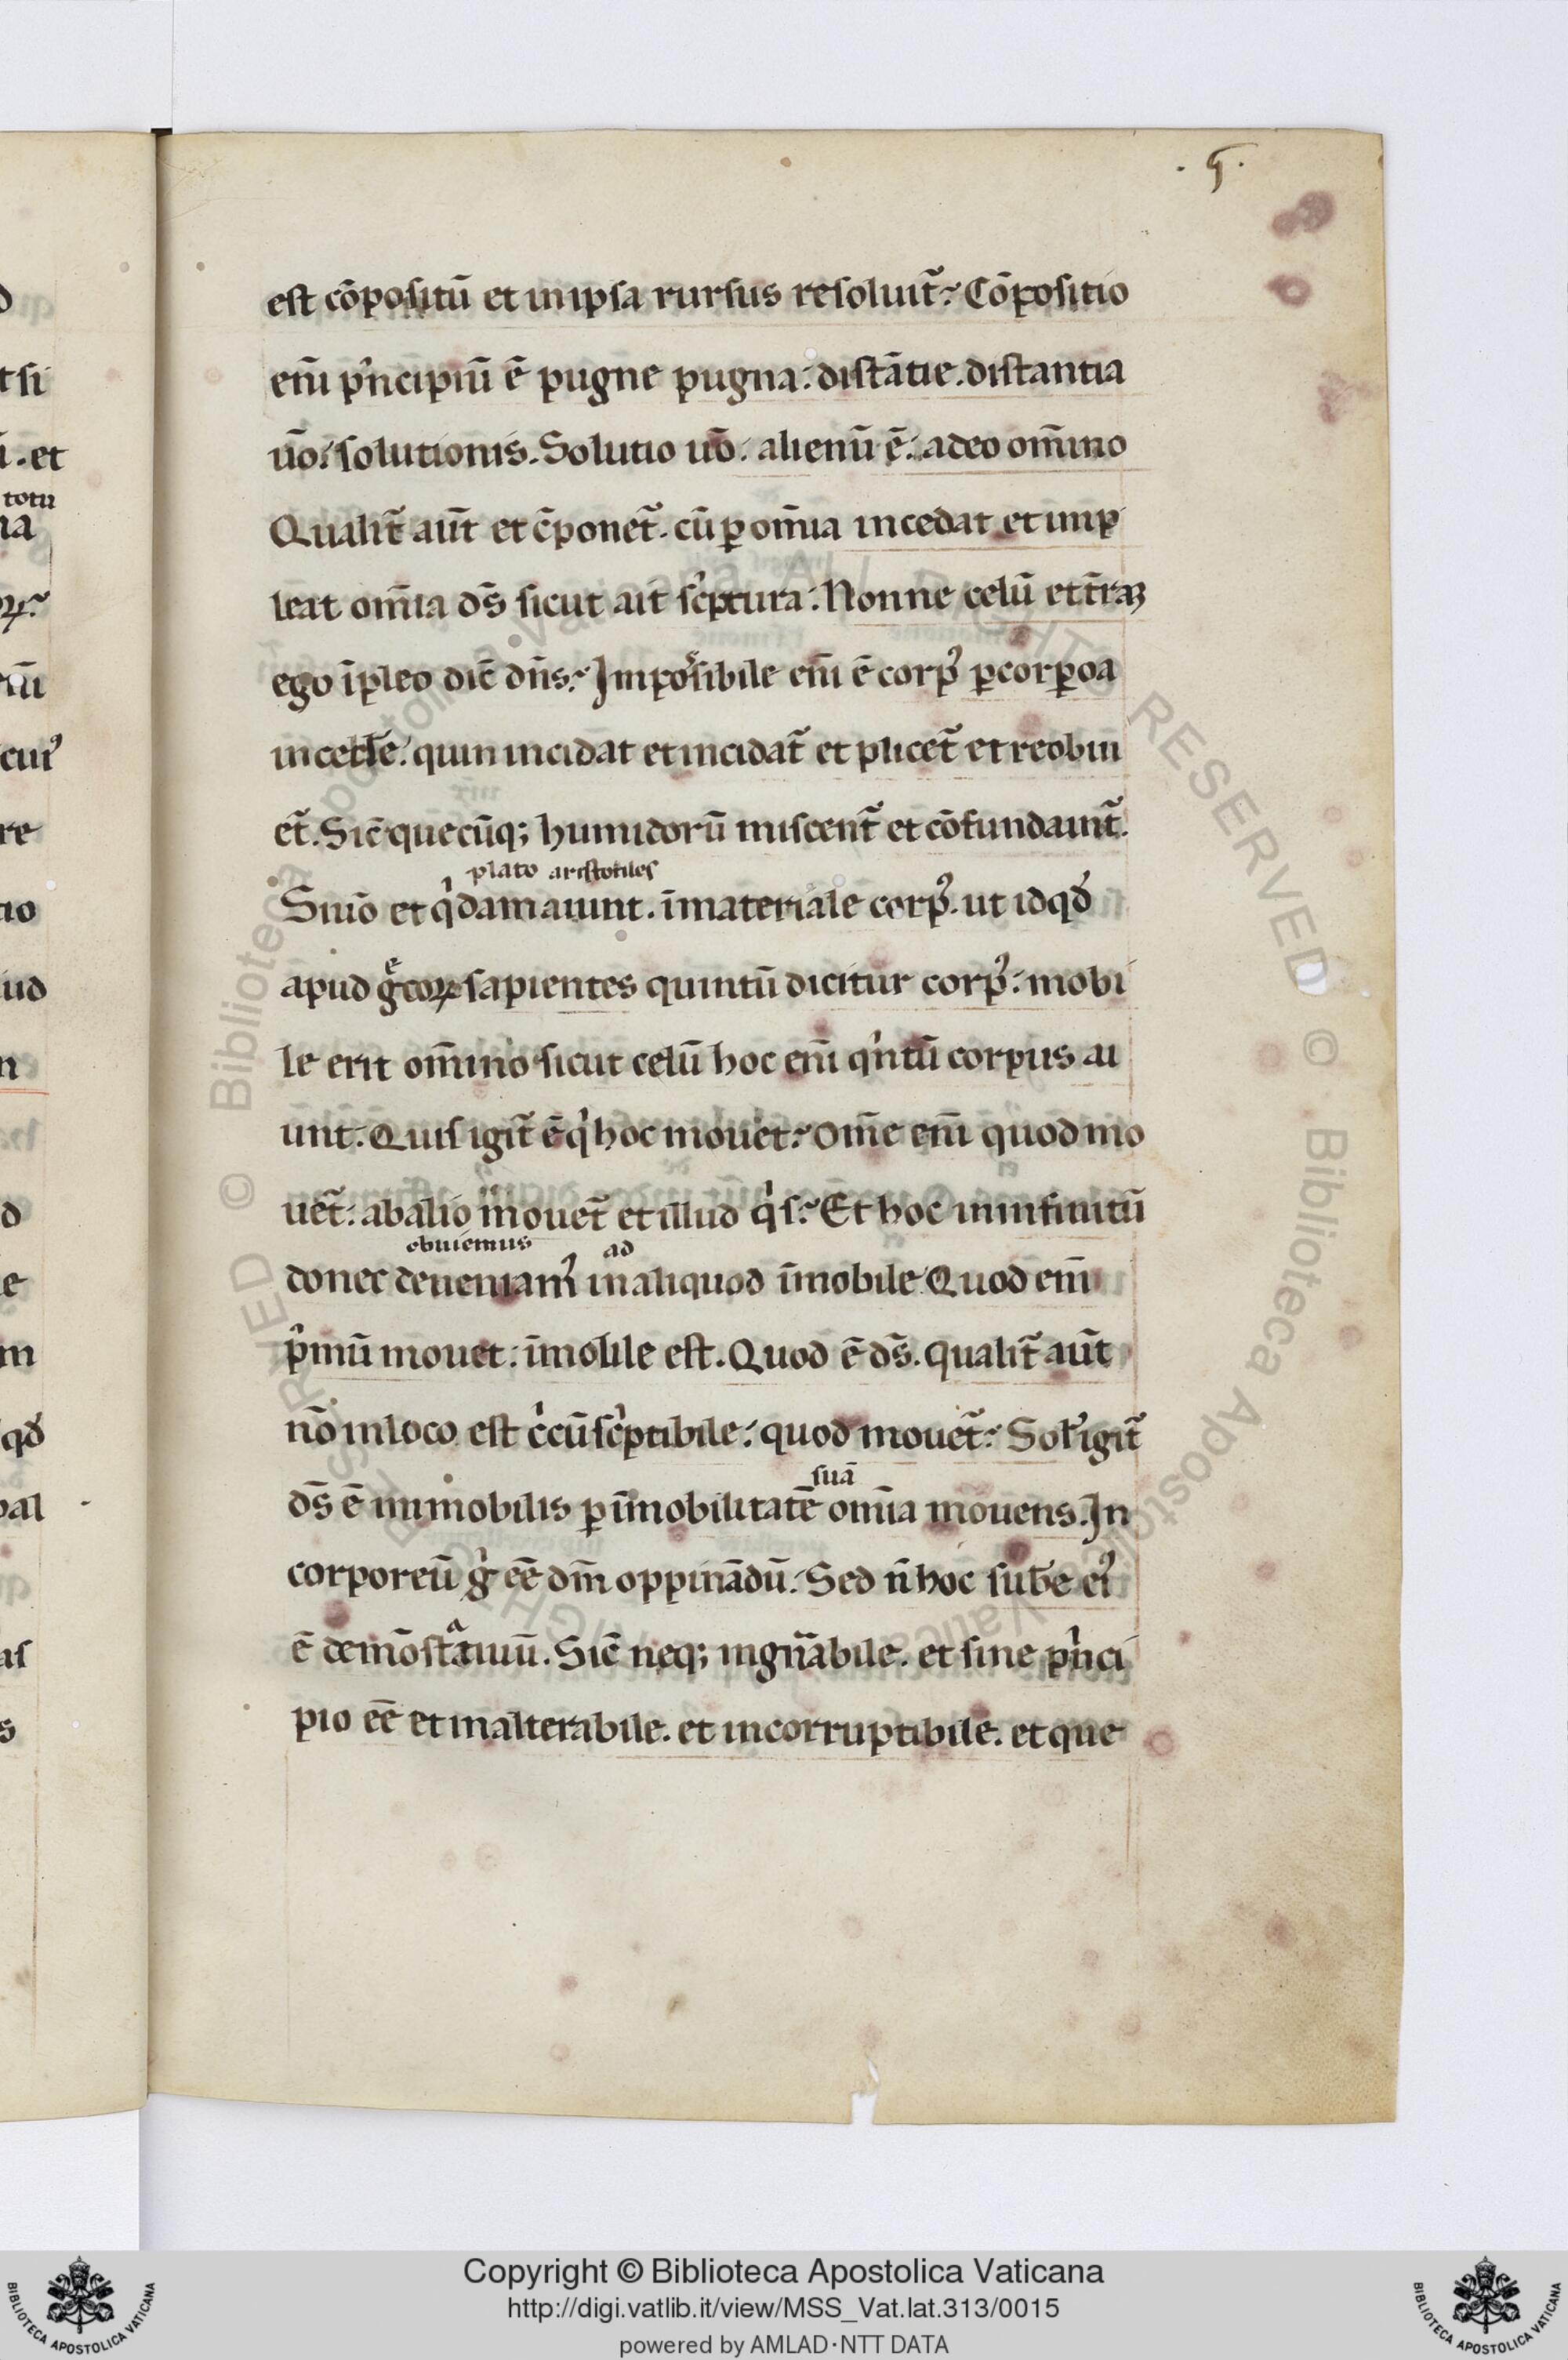 .5.
est cō̄positū et in ipsa rursus resoluit᷑. Cōpositio
eni᷑ pͥncipiū ē pugne pugna: distātie. distantia
uō: solutionis. Solutio uō: alienū ē: adeo om̄ino
Qualit᷑ aūt et c̄ponet᷑. cū ꝑ om̄ia incedat et imp
leat om̄ia ds̄ sicut ait scͥptura: Nonne celū et t̄raꝫ
ego īpleo dic̄ dn̄s: Impossibile em̄ ē corpꝰ ꝑ corꝑoa
incedere: quin incidat et incidat᷑ et plicet᷑ et reobui
et᷑. Sic̄ quecūq; humidorū miscent᷑ et cōfundaunt᷑.
plato aristotiles
Sin uō et qͥdam aiunt. īmateriale corpꝰ. ut id qd̄
apud gͤcoꝝ sapientes quintū dicitur corpꝰ: mobi
le erit om̄ino sicut celū hoc em̄ qͥntū corpus ai
unt: Quis igit᷑ ē qͥ hoc mouet: Om̄e em̄ quod mo
uet᷑: ab alio mouet᷑ et illud qͥs: Et hoc in infinitū
obuiemus ad
donec deueniamꝰ in aliquod īmobile Quod em̄
pͥmū mouet: īmobile est. Quod ē ds̄. qualit᷑ aūt
nō in loco est cͥcūscͥptibile: quod mouet᷑: Solꝰ igit᷑
suā
ds̄ ē immobilis ꝑ īmobilitatē om̄ia mouens. In
corporeū gͥ eē dm̄ oppinādū: Sed n̄ hoc sub̄e eiꝰ
ē demōstͣtiuū. Sic̄ neq; ingn̄abile. et sine pͥnci
pio eē et inalterabile. et incorruptibile. et que
Copyright © Biblioteca Apostolica Vaticana
http://digi.vatlib.it/view/MSS_Vat.lat.313/0015
powered by AMLAD·NTT DATA